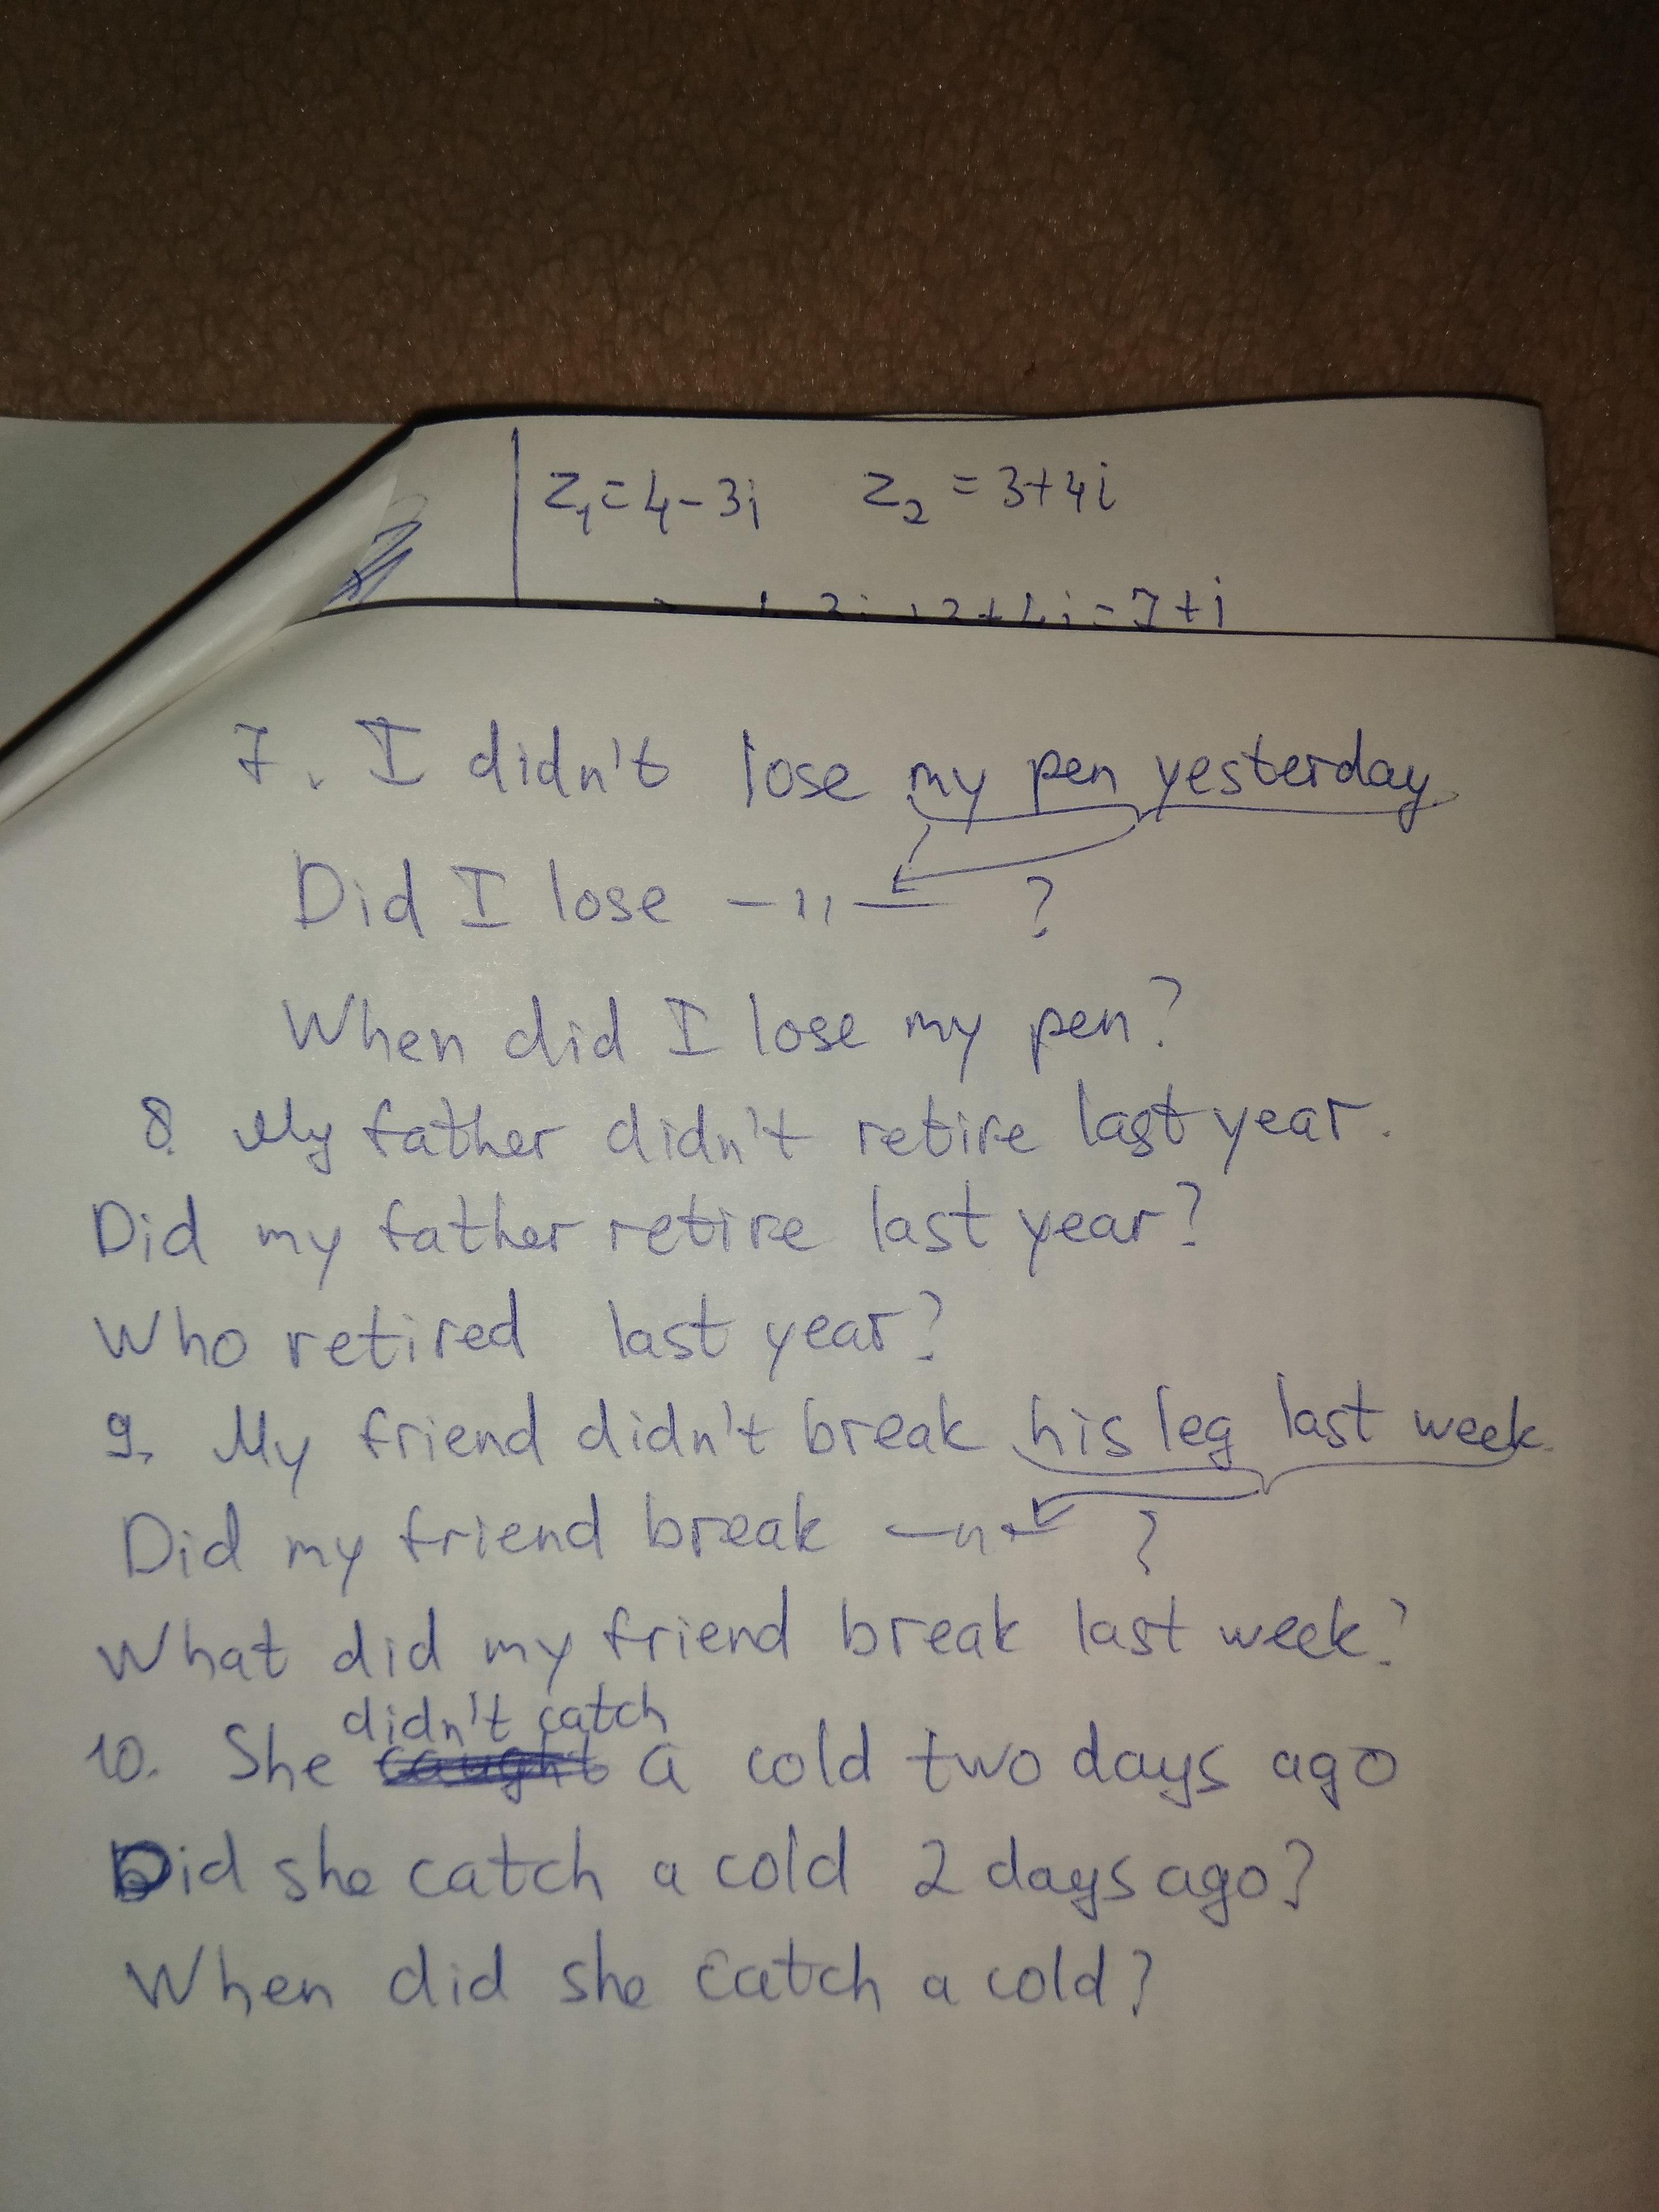 z₁=4-3i z₂=3+4i
=7+i
7. I didn't lose my pen yesterday
Did I lose -11- ?
When did I lose my pen?
8. My father didn't retire last year.
Did my father retire last year?
Who retired last year?
9. My friend didn't break his leg last week.
Did my friend break -11- ?
What did my friend break last week?
didn't catch
10. She caught a cold two days ago
Did she catch a cold 2 days ago?
When did she catch a cold?